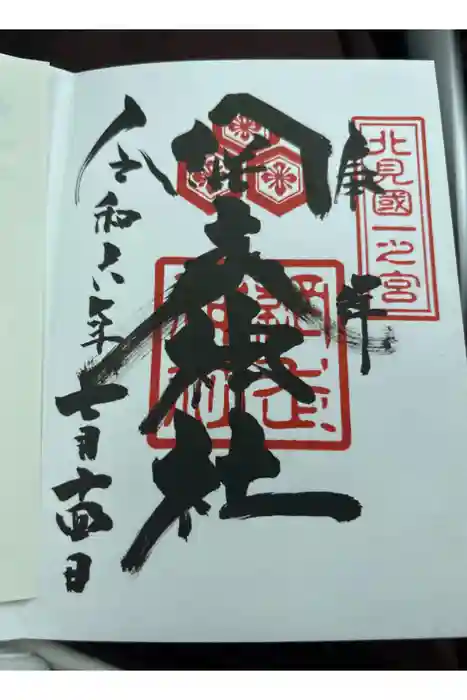 北見國一之宮
奉拝
網走神社
網走
神社
令和六年
七月十四日